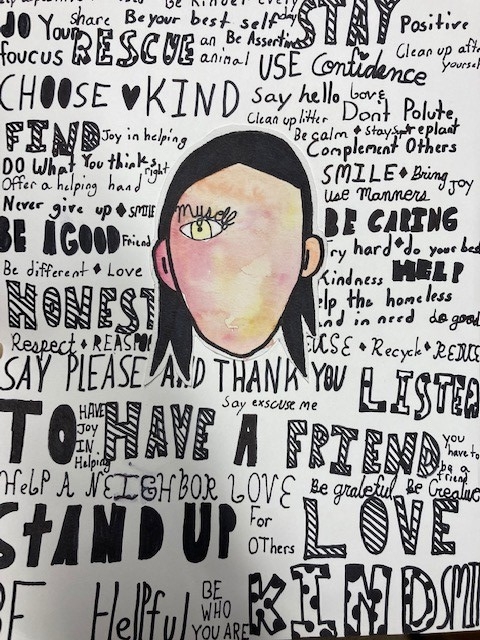 Be kinder every
JO Your Share Be your best self STAY Positive
foucus RESCUE an animal Be Assertive Clean up after yourself
USE Confidence
CHOOSE ♥ KIND Say hello Love
Clean up litter Dont Polute
FIND Joy in helping Be calm ♦ Stay replant
DO What You think right Complement Others
Offer a helping hand SMILE ♦ Bring Joy
Never give up ♦ SMILE use Manners
myself
BE A GOOD Friend BE CARING
Try hard ♦ do your best
Be different ♦ Love Kindness HELP
HONEST help the homeless
and in need do good
Respect ♦ REASPO USE ♦ Recycle ♦ REDUCE
SAY PLEASE AND THANK YOU LISTEN
Say exscuse me
TO HAVE JOY IN Helping HAVE A FRIEND you have to be a friend
HeLP A NEIGHBOR LOVE Be grateful Be Creative
StAND UP For OTHers LOVE
BE Helpful BE WHO YOU ARE KIND SMI